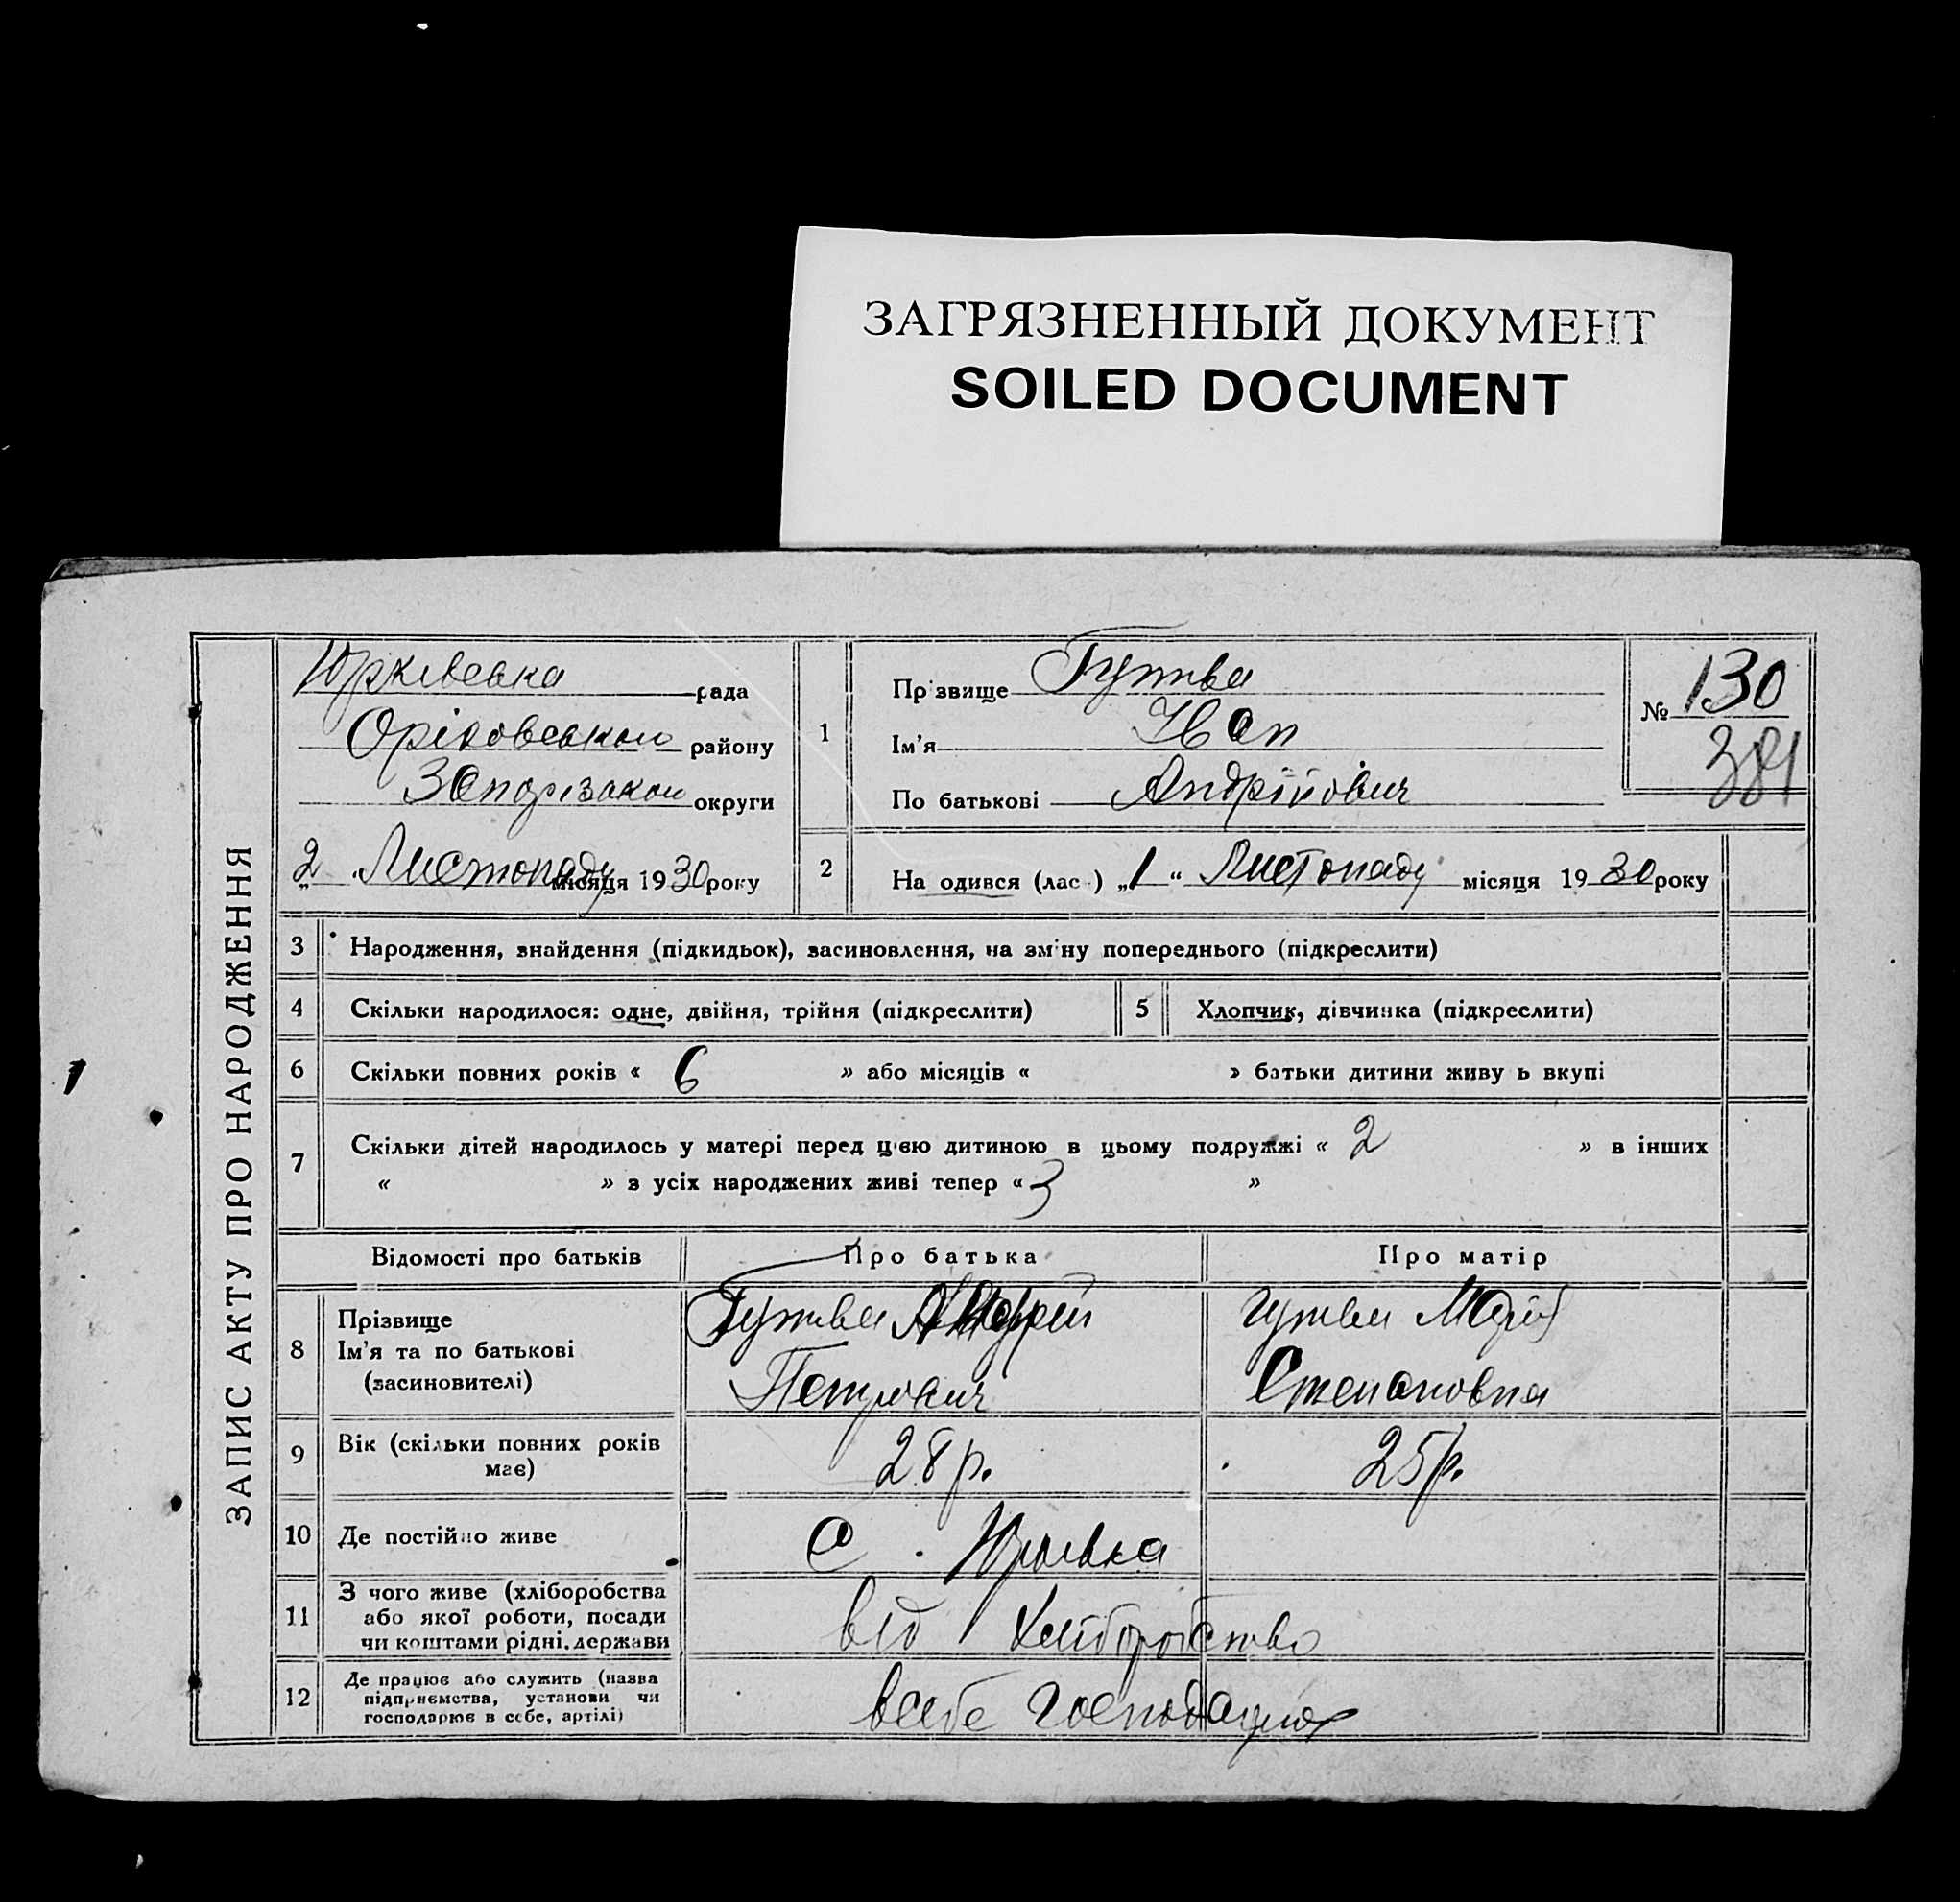 ЗАГРЯЗНЕННЫЙ ДОКУМЕНТ
SOILED DOCUMENT
ЗАПИС АКТУ ПРО НАРОДЖЕННЯ
Юрківська рада
Оріхівської району
Запорізької округи
„2 Листопаду місяця 1930 року
1
Прізвище Гутва
Ім'я Іван
По батькові Андрійович
№ 130
381
2
Народився (лась) „1“ Листопаду місяця 1930 року
3 Народження, знайдення (підкидьок), засиновлення, на зміну попереднього (підкреслити)
4 Скільки народилося: одне, двійня, трійня (підкреслити)
5 Хлопчик, дівчинка (підкреслити)
6 Скільки повних років « 6 » або місяців « » батьки дитини живуть вкупі
7 Скільки дітей народилось у матері перед цією дитиною в цьому подружжі « 2 » в інших
« » з усіх народжених живі тепер « 3 »
Відомості про батьків Про батька Про матір
8 Прізвище
Ім'я та по батькові
(засиновителі)
Гутва Андрій
Петрович
Гутва Марія
Степановна
9 Вік (скільки повних років
має)
28 р.
25 р.
10 Де постійно живе
с. Юрківка
11 З чого живе (хліборобства
або якої роботи, посади
чи коштами рідні, держави
від хліборобства
12 Де працює або служить (назва
підприємства, установи чи
господарює в себе, артілі)
в себе